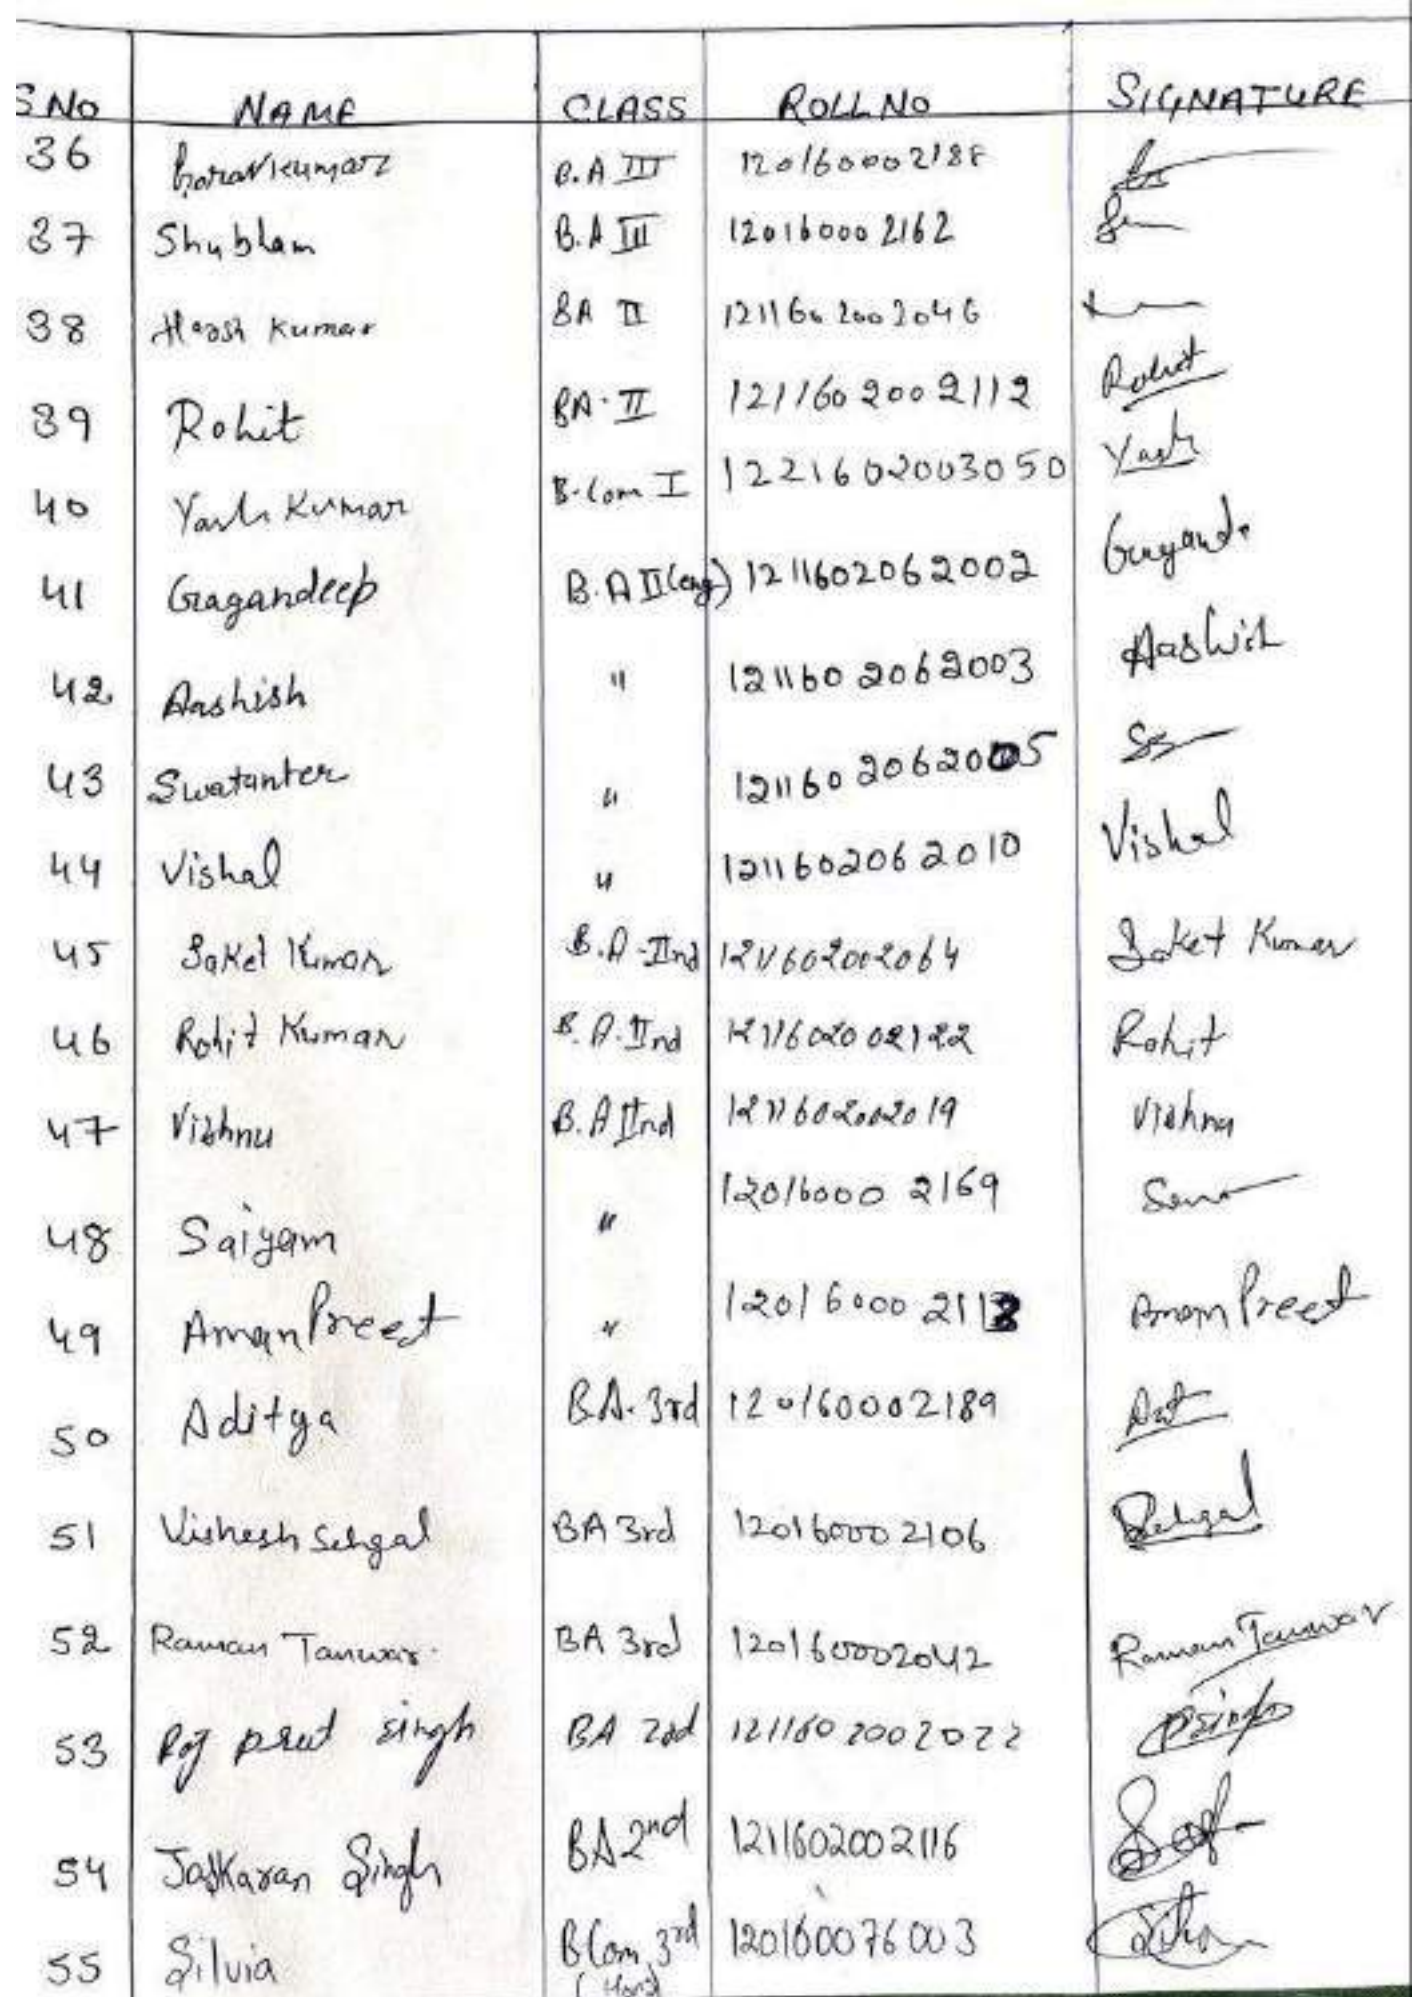 S.No NAME CLASS ROLL NO SIGNATURE
36 Goravkumar B.A III 120160002188
37 Shubham B.A III 120160002162
38 Harsh Kumar BA II 1211602002046
39 Rohit BA-II 1211602002112 Rohit
40 Yash Kumar B.Com I 1221602003050 Yash
41 Gagandeep B.A II (eng) 1211602062002 Gagande
42 Aashish " 1211602062003 Aashish
43 Swatanter " 1211602062005
44 Vishal " 1211602062010 Vishal
45 Saket Kumar B.A-IInd 1211602002064 Saket Kumar
46 Rohit Kumar B.A.IInd 1211602002122 Rohit
47 Vishnu B.A IInd 1211602002019 Vishnu
48 Saiyam " 120160002169
49 AmanPreet " 12016000211 AmanPreet
50 Aditya BA.3rd 120160002189
51 Vishesh Sehgal BA 3rd 120160002106 Sehgal
52 Raman Tanwar. BA 3rd 120160002042 Raman Tanwar
53 Raj preet singh BA 2nd 1211602002022 PSingh
54 Jaskaran Singh BA 2nd 1211602002116
55 Silvia BCom 3rd 120160076003
(Hons)